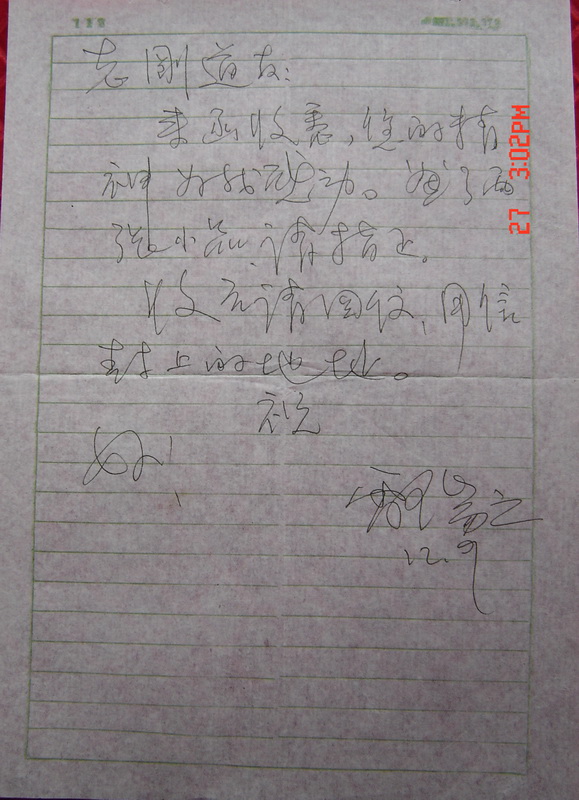 志刚道友：
来函收悉，您的精
神为我感动。画了两
张小品，请指正。
收到请回信，用信
封上的地址。
祝
好！
12.9
27 3:02PM